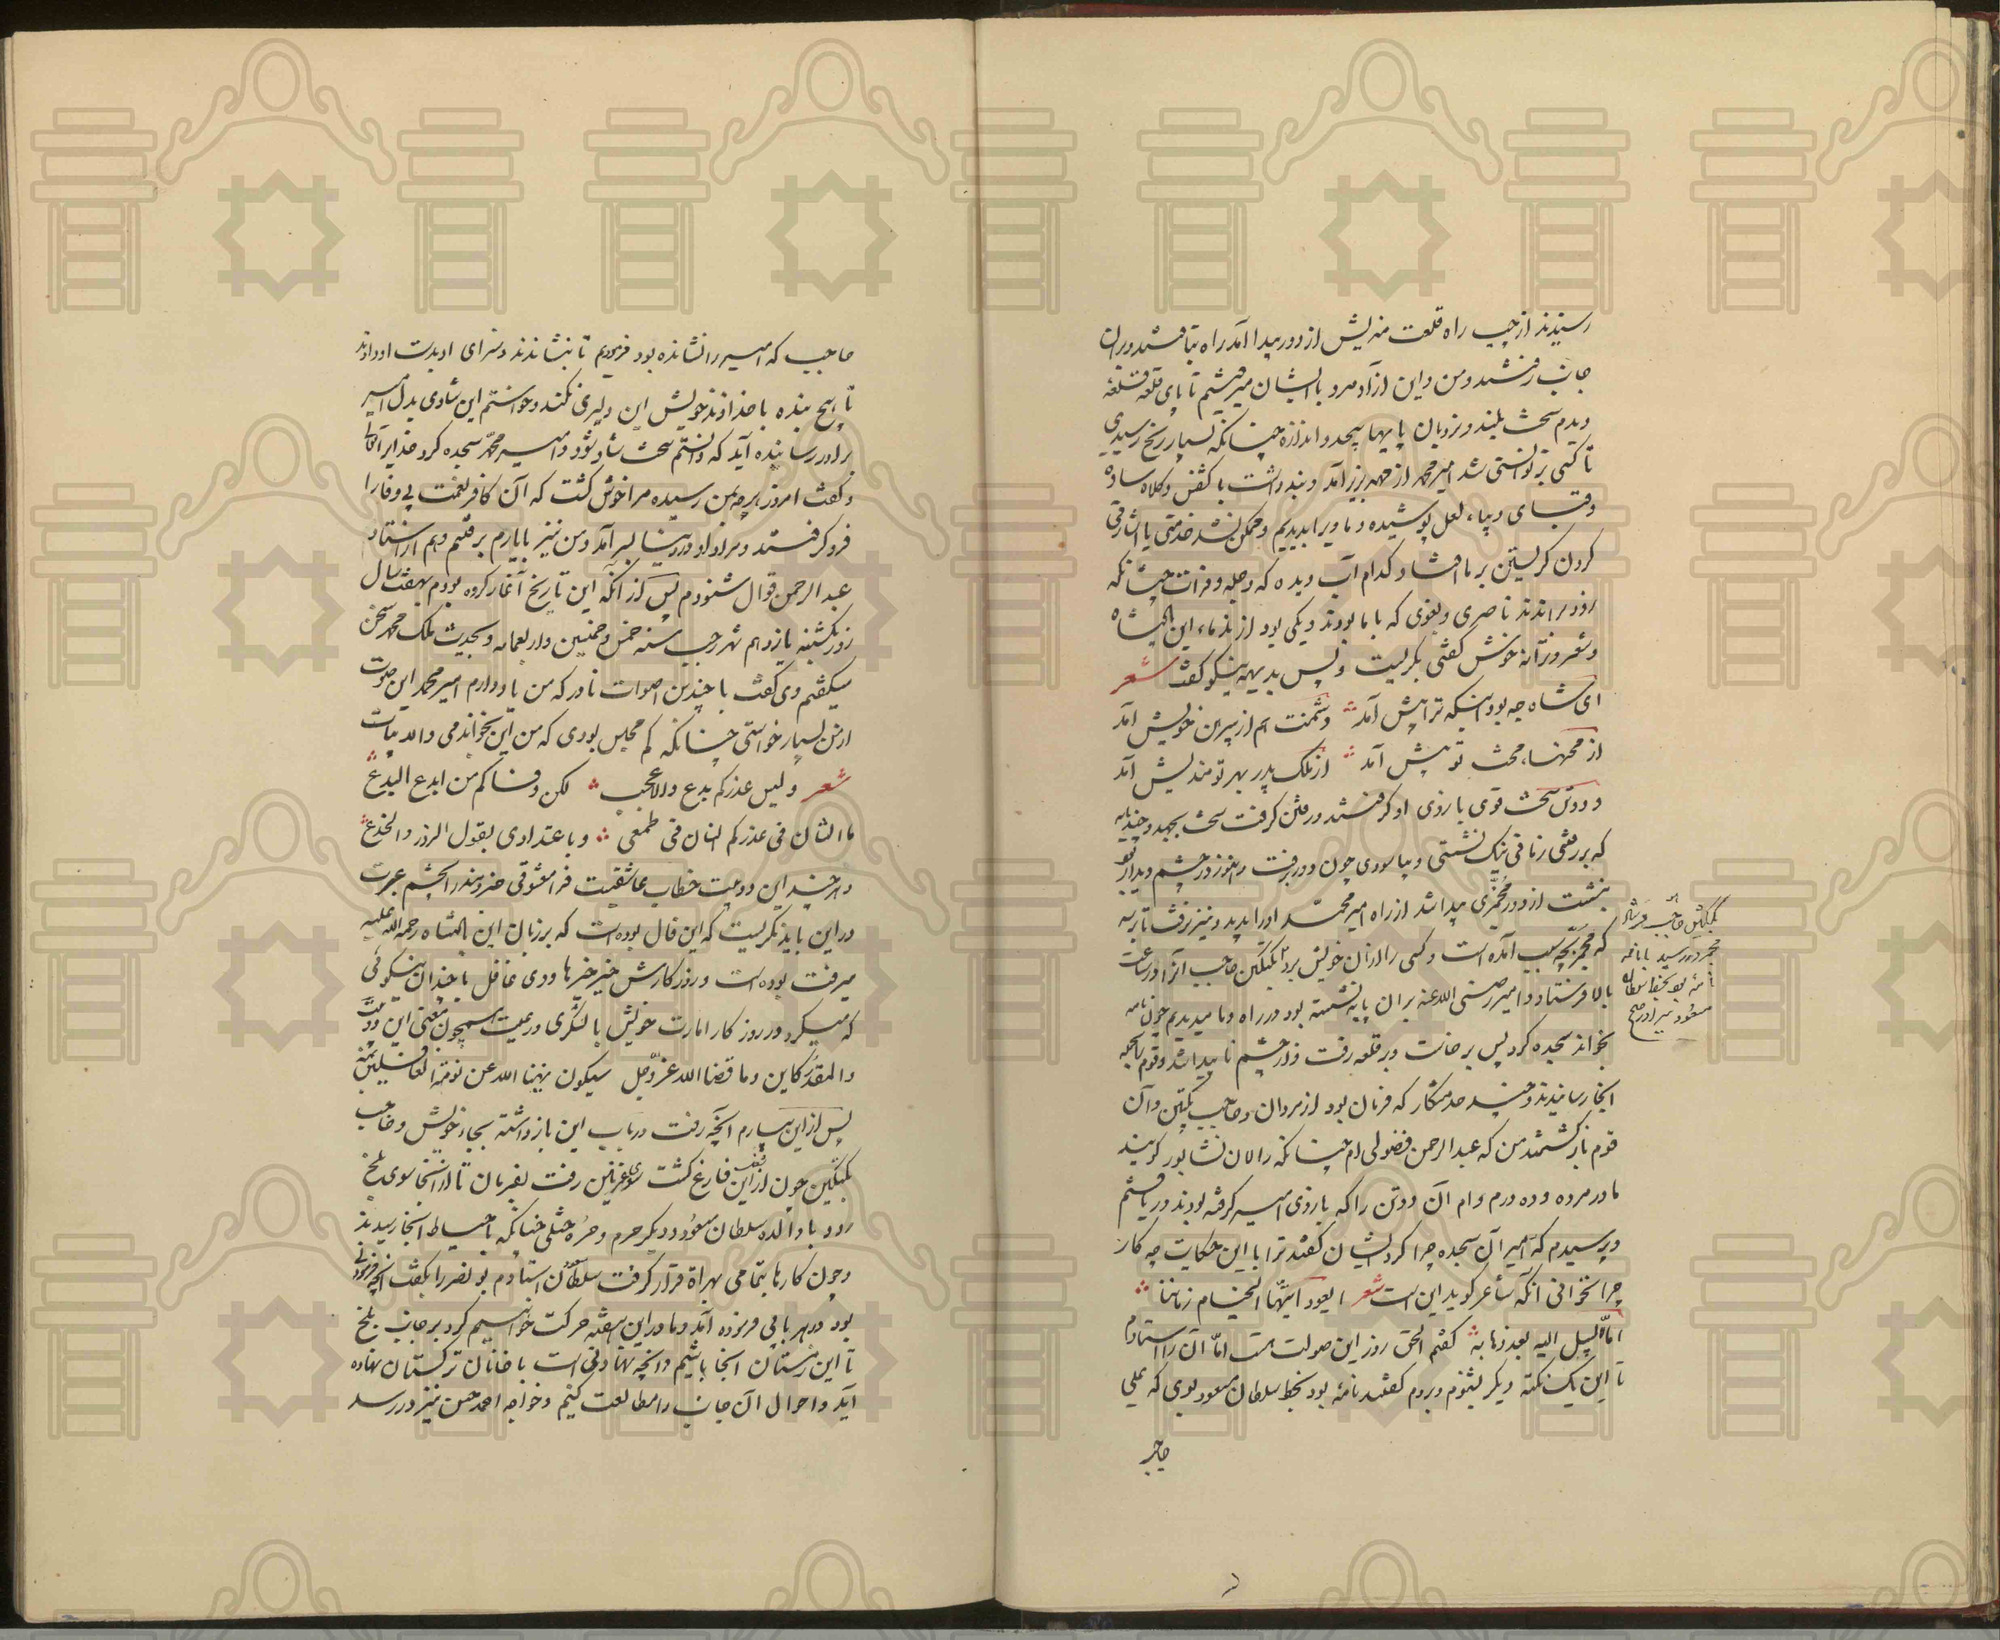 رسیدند از چپ راه قلعت مندیش از دور پیدا آمد راه بتافتند و بران
جانب رفتند و من و این آزاد مرد با ایشان میرفتیم تا پای قلعه قلعهٔ
دیدم سخت بلند و نردبان پایها بیحد و اندازه چنانکه بسیار رنج رسیدی
تا کسی بر توانستی شد امیر محمد از مهد بزیر آمد و بند داشت با کفش و کلاه ساده
و قبای دیبا، لعل پوشیده و ما ویرا بدیدیم و ممکن نشد خدمتی یا اشارتی
کردن گریستن بر ما افتاد کدام آب دیده که دجله و فرات چنانکه
رود براندند ناصری و بغوی که با ما بودند و یکی بود از ندماء این پادشاه
و شعر و ترانه خوش گفتی بگریست و پس بدیهه نیکو گفت شعر
ای شاه چه بود اینکه ترا پیش آمد دشمنت هم از پیرهن خویش آمد
از محنتها، محنت تو پیش آمد از ملک پدر بهر تو مندیش آمد
و دو تن سخت قوی بازوی او گرفتند و رفتن گرفت سخت بجهد و چند پایه
که بر رفتی زمانی نیک بنشستی و بیاسودی چون دور برفت و هنوز در چشم دیدار بود
بنشست از دور مجمزی پیدا شد از راه امیر محمد او را بدید و نیز نرفت تا پرسد
که مجمز بچه سبب آمده است و کسی را از آن خویش برد بگتگین حاجب آنرا در ساعت
بالا فرستاد و امیر رضی الله عنه بران پایه نشسته بود در راه و ما میدیدیم چون نامه
بخواند سجده کرد پس برخاست و بر قلعه رفت و از چشم ناپیدا شد و قوم بجمله
آنجا رسانیدند و چند خدمتکار که فرمان بود از مردان و حاجب بگتگین و آن
قوم بازگشتند من که عبدالرحمن فضولی ام چنانکه زالان نشابور گویند
مادر مرده و ده درم وام آن دو تن را که بازوی امیر گرفته بودند دریافتم
و پرسیدم که امیر آن سجده چرا کرد ایشان گفتند ترا با این حکایت چه کار
چرا نخوانی آنکه شاعر گوید این است شعر ایعود ایتها الخیام زماننا
ام لا سبیل الیه بعد ذهابه گفتم الحق روز این صولت هست اما آن را استادم
تا این یک نکته دیگر بشنوم و بروم گفتند نامهٔ بود بخط سلطان مسعود بوی که علی
حاجب
بگتگین حاجب کس فرستاد
مجمز در رسید با نامه
نامهٔ بود بخط سلطان
مسعود ببرادرش
حاجب که امیر را نشانده بود فرمودیم تا بنشاندند و سزای او بدست او دادند
تا هیچ بنده با خداوند خویش این دلیری نکند و خواستم این شادی بدل امیر
برادر رسانیده آید که دانستم سخت شاد شود و امیر محمد سجده کرد خدایرا تعالی
و گفت امروز هرچه بمن رسیده مرا خوش گشت که آن کافر نعمت بی وفا را
فرو گرفتند و مراد او در دنیا بسر آمد و من نیز با یارم برفتیم و هم از استاد
عبدالرحمن قوال شنودم پس از آنکه این تاریخ آغاز کرده بودم بهفت سال
روز یکشنبه یازدهم شهر رجب سنه خمس و خمسین و اربعمائه و بحدیث ملک محمد سخن
میگفتیم وی گفت با چندین اصوات نادر که من یاد دارم امیر محمد این صوت
از من بسیار خواستی چنانکه کم مجلس بودی که من این نخواندمی والابیات
شعر ولیس غدرکم بدع ولا عجب لکن وفاکم من ابدع البدع
ما الشان فی غدرکم الشان فی طمعی و باعتدادی بقول الزور والخدع
و هرچند این دو بیت خطاب عاشقیست فرا معشوقی خردمند را بچشم عبرت
در این باید نگریست که این فال بوده است که بر زبان این پادشاه رحمه الله علیه
میرفت بوده است و روزگارش خیر خیرها و وی غافل با چندان نیکوئی
که میکرد در روزگار امارت خویش با لشکری و رعیت همچون معنی این دو بیت
والمقدر کاین و ما قضا الله عز و جل سیکون نبهنا الله عن نومة الغافلین بمنه
پس از این بیارم آنچه رفت در باب این بازداشته بجاء خویش و حاجب
بگتگین چون از این شغل فارغ گشت سوی غزنین رفت بفرمان تا از آنجا سوی بلخ
رود با والده سلطان مسعود و دیگر حرم و حره ختلی چنانکه باحتیاط آنجا رسیدند
و چون کارها بتمامی بهراة قرار گرفت سلطان مسعود استادم بونصر را بگفت آنچه فرمودنی
بود در هر بابی فرموده آمد و ما در این هفته حرکت خواهیم کرد بر جانب بلخ
تا این زمستان آنجا باشیم و آنچه نهادنی است با خانان ترکستان نهاده
آید و احوال آن جانب را مطالعت کنیم و خواجه احمد حسن نیز در رسد